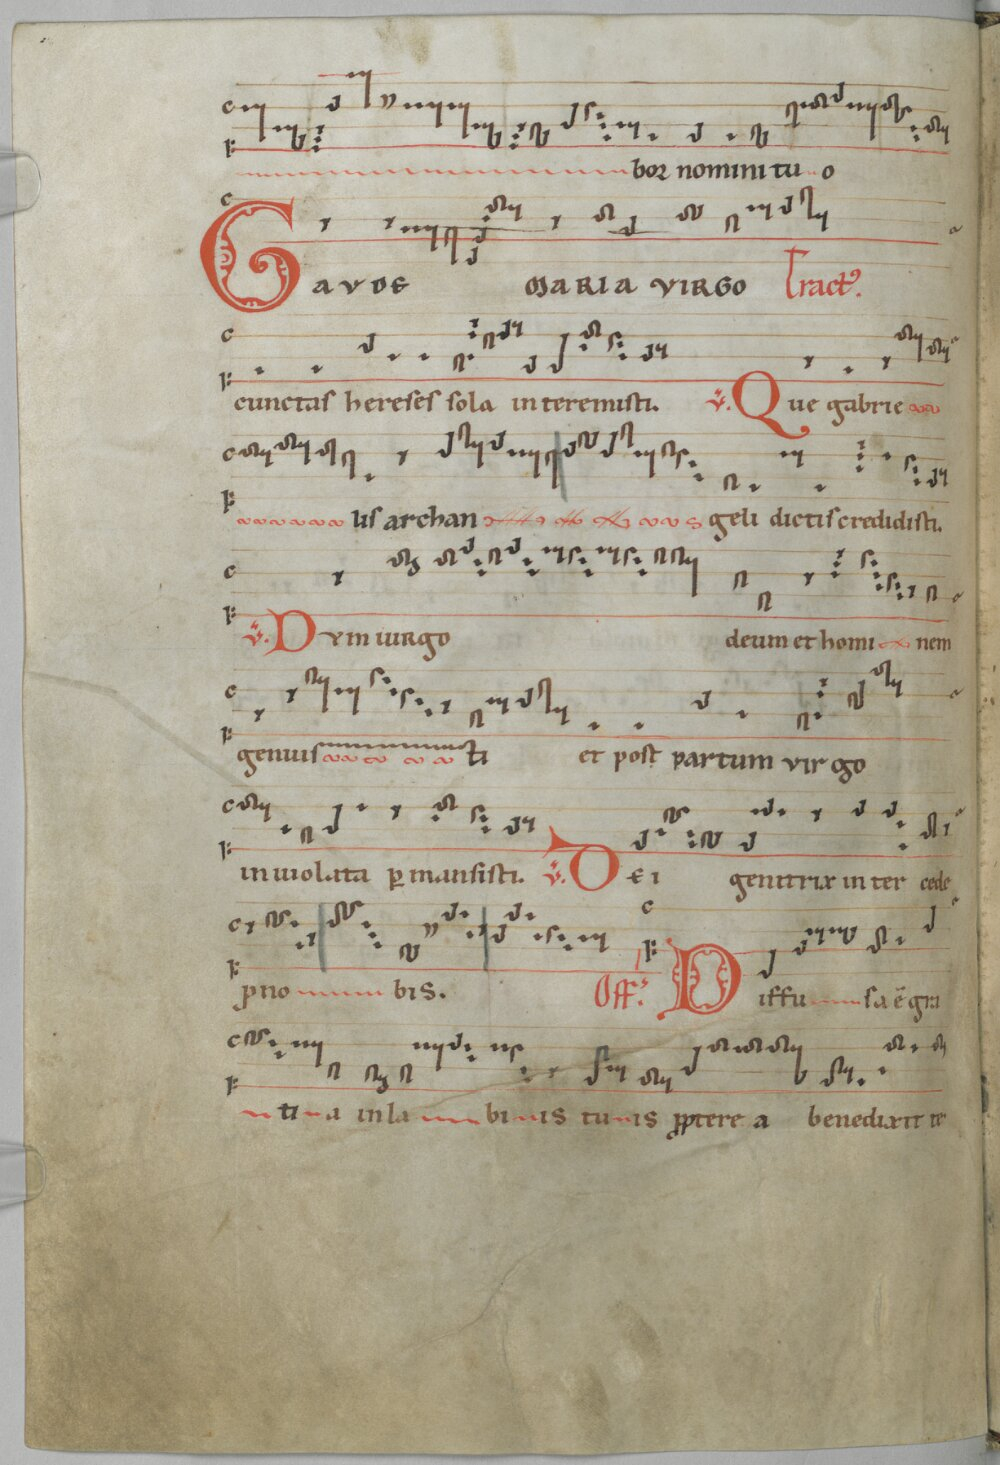 bor nomini tu o
GAVDE MARIA VIRGO Tract9.
cunctas hereses sola interemisti. v. Que gabrie
lis archan geli dictis credidisti.
v. Dvm uirgo deum et homi nem
genuisti et post partum virgo
inuiolata pmansisti. v. Dei genitrix inter cede
pno bis. Off. Diffu sa ē gra
ti a in la bi is tu is ppterea benedixit te